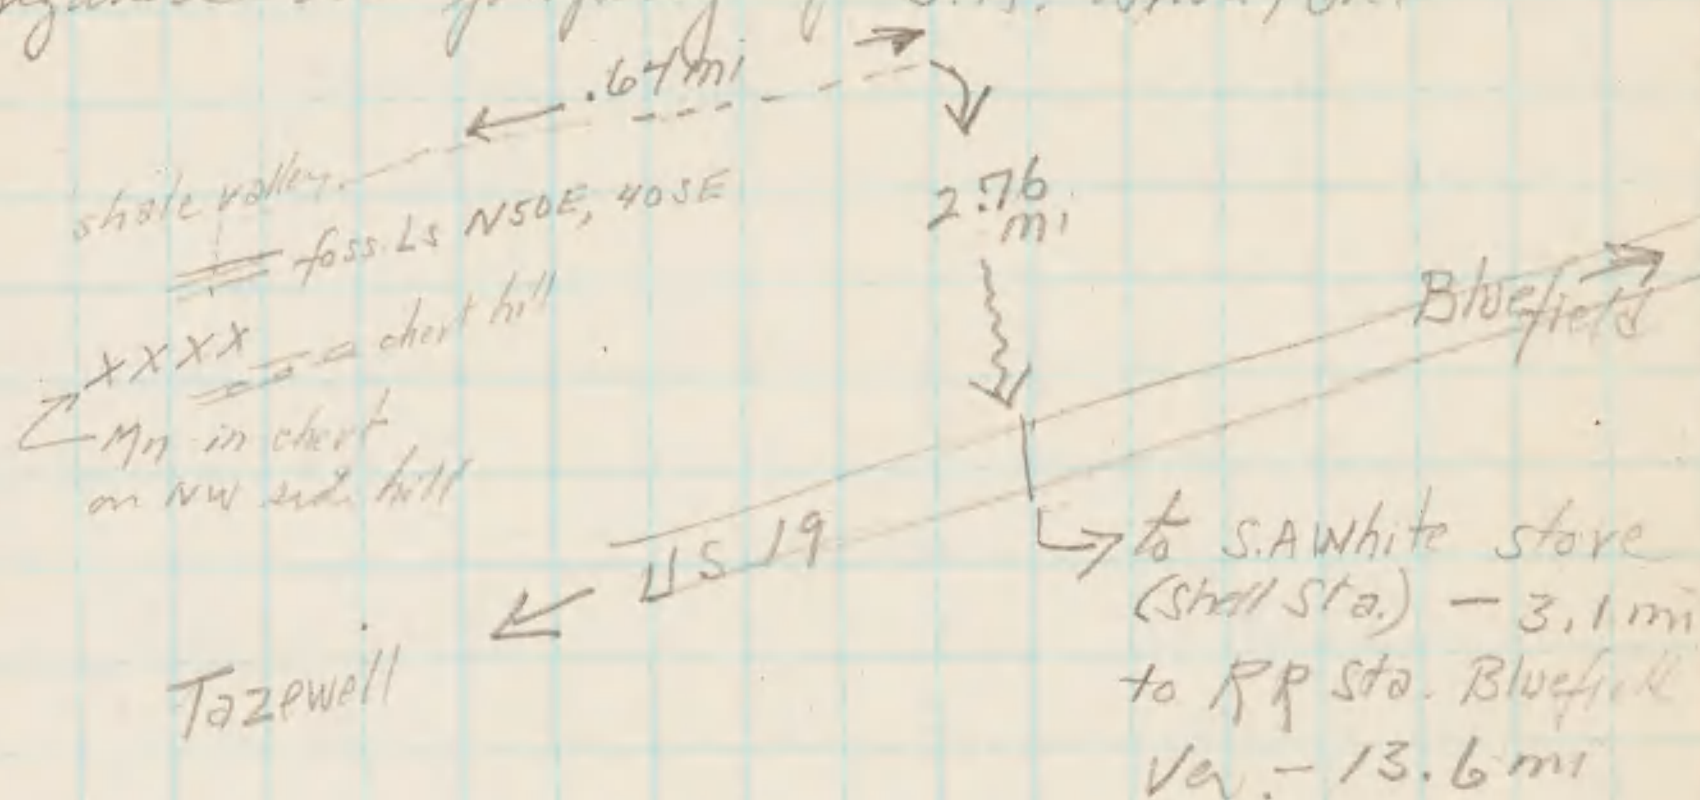 .64 mi
shale valley.
foss. Ls N50E, 40SE
XXXX
chert hill
Mn in chert
on NW side hill
2.76
mi
Bluefield
US 19
Tazewell
to S.A White store
(Shell Sta.) - 3.1 mi
to RR Sta. Bluefield
Va. - 13.6 mi